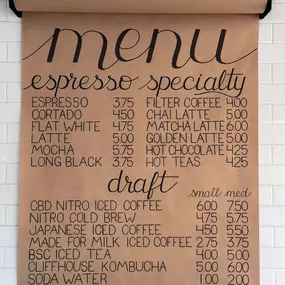 menu
espresso specialty
ESPRESSO 3.75 FILTER COFFEE 4.00
CORTADO 4.50 CHAI LATTE 5.00
FLAT WHITE 4.75 MATCHA LATTE 6.00
LATTE 5.00 GOLDEN LATTE 5.00
MOCHA 5.75 HOT CHOCOLATE 4.25
LONG BLACK 3.75 HOT TEAS 4.25
draft
small med
CBD NITRO ICED COFFEE 6.00 7.50
NITRO COLD BREW 4.75 5.75
JAPANESE ICED COFFEE 4.50 5.50
MADE FOR MILK ICED COFFEE 2.75 3.75
BSC ICED TEA 4.00 5.00
CLIFFHOUSE KOMBUCHA 5.00 6.00
SODA WATER 1.00 2.00